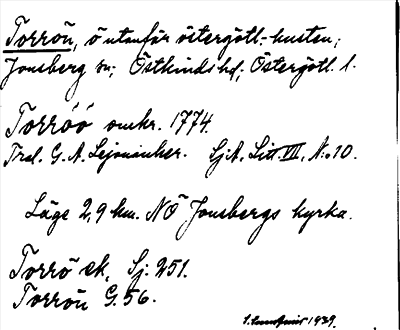 Torrön, ö utanför östergötl. kusten;
Jonsberg sn; Östkinds hd; Östergötl. l.
Torröö omkr. 1774.
Tral. G. A. Lejonancker. SjA, Litt. VII, N:o 10.
Läge 2,9 km. NÖ Jonsbergs kyrka.
Torrö ek, Sj. 251.
Torrön G. 56.
1939.